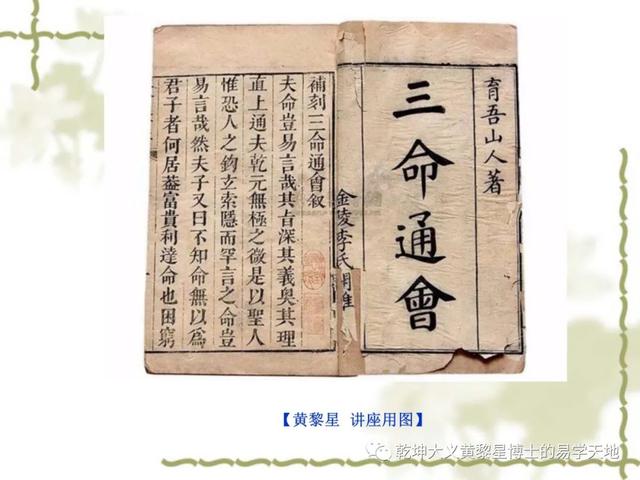 育吾山人著
三命通會
金陵李氏
補刻三命通會叙
夫命豈易言哉其旨深其義奥其理
直上通夫乾元無極之微是以聖人
惟恐人之鈎玄索隱而罕言之命豈
易言哉然夫子又曰不知命無以為
君子者何居葢富貴利達命也困窮
【黄黎星 讲座用图】
乾坤大义黄黎星博士的易学天地